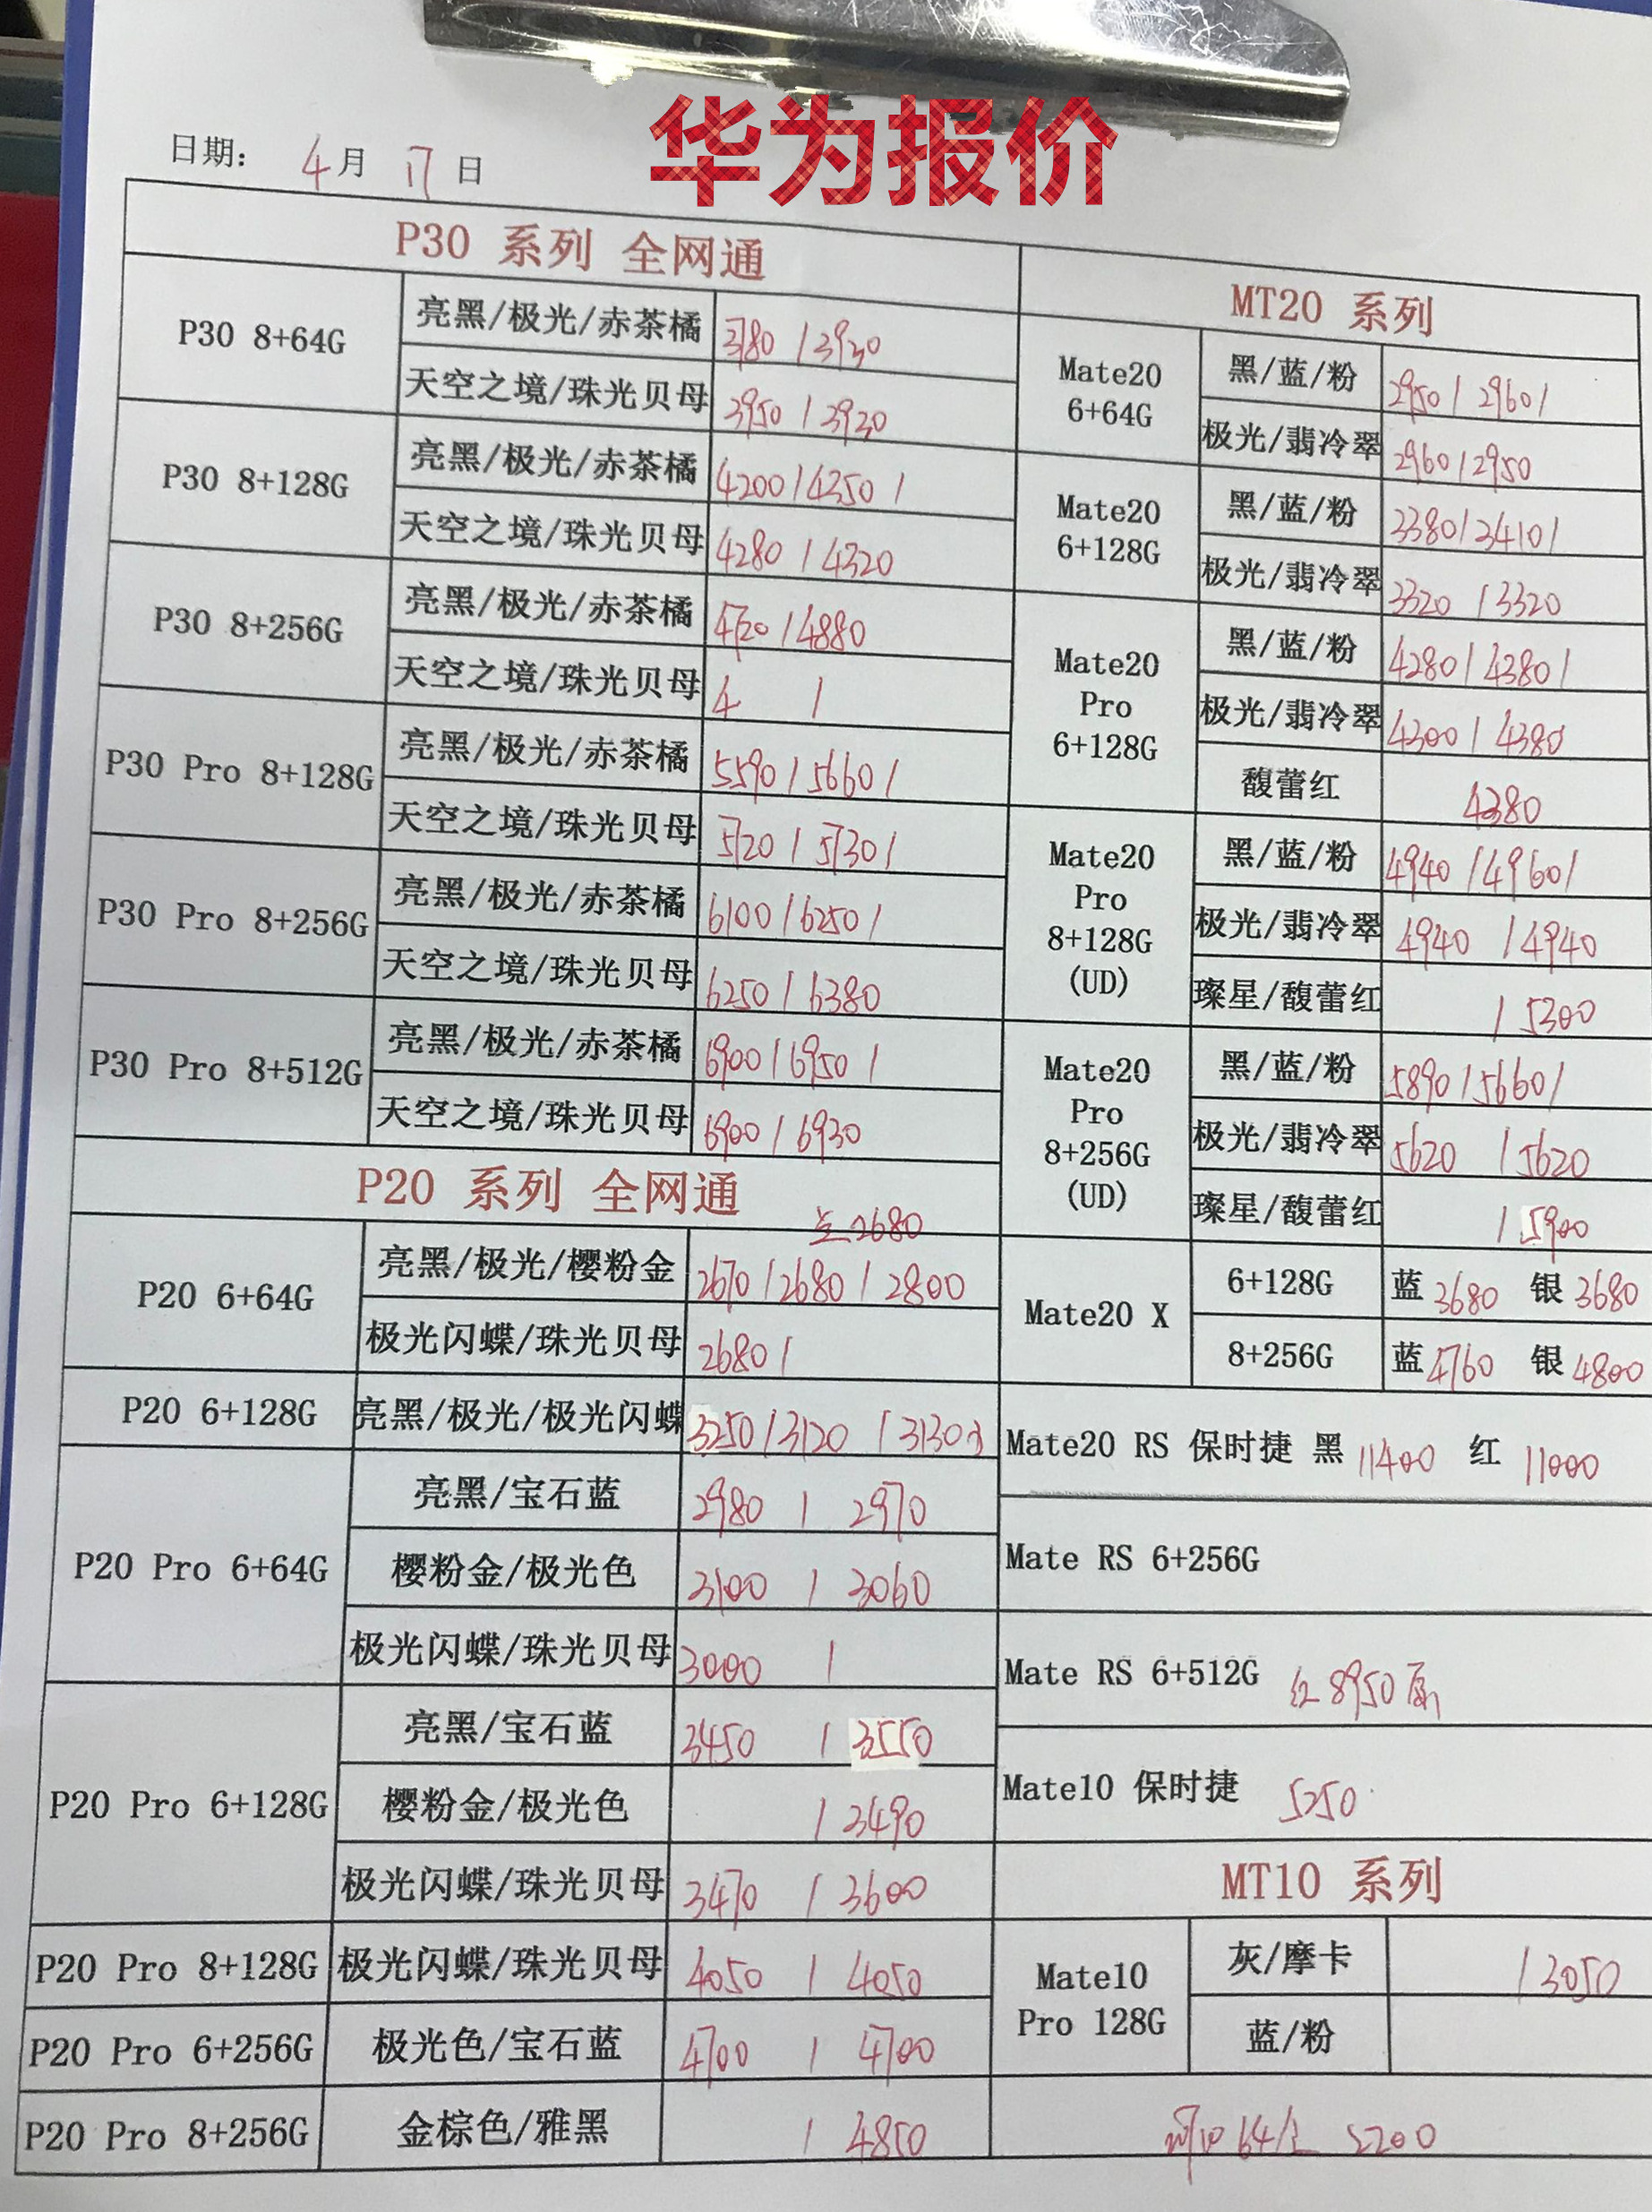 华为报价
日期： 4月 17日
P30 系列 全网通
P30 8+64G 亮黑/极光/赤茶橘 3780 / 3930
天空之境/珠光贝母 3950 / 3930
P30 8+128G 亮黑/极光/赤茶橘 4200 / 4350 /
天空之境/珠光贝母 4280 / 4320
P30 8+256G 亮黑/极光/赤茶橘 4720 / 4880
天空之境/珠光贝母 4 /
P30 Pro 8+128G 亮黑/极光/赤茶橘 5590 / 5660 /
天空之境/珠光贝母 5720 / 5730 /
P30 Pro 8+256G 亮黑/极光/赤茶橘 6100 / 6250 /
天空之境/珠光贝母 6250 / 6380
P30 Pro 8+512G 亮黑/极光/赤茶橘 6900 / 6950 /
天空之境/珠光贝母 6900 / 6930
P20 系列 全网通
2680
P20 6+64G 亮黑/极光/樱粉金 2670 / 2680 / 2800
极光闪蝶/珠光贝母 2680 /
P20 6+128G 亮黑/极光/极光闪蝶 3250 / 3120 / 3130
P20 Pro 6+64G 亮黑/宝石蓝 2980 / 2970
樱粉金/极光色 3100 / 3060
极光闪蝶/珠光贝母 3000 /
P20 Pro 6+128G 亮黑/宝石蓝 3450 / 3550
樱粉金/极光色 / 3490
极光闪蝶/珠光贝母 3470 / 3600
P20 Pro 8+128G 极光闪蝶/珠光贝母 4050 / 4050
P20 Pro 6+256G 极光色/宝石蓝 4700 / 4700
P20 Pro 8+256G 金棕色/雅黑 / 4850
MT20 系列
Mate20 6+64G 黑/蓝/粉 2950 / 2960 /
极光/翡冷翠 2960 / 2950
Mate20 6+128G 黑/蓝/粉 3380 / 3410 /
极光/翡冷翠 3320 / 3320
Mate20 Pro 6+128G 黑/蓝/粉 4280 / 4380 /
极光/翡冷翠 4300 / 4380
馥蕾红 4380
Mate20 Pro 8+128G (UD) 黑/蓝/粉 4940 / 4960 /
极光/翡冷翠 4940 / 4940
璨星/馥蕾红 / 5300
Mate20 Pro 8+256G (UD) 黑/蓝/粉 5890 / 5660 /
极光/翡冷翠 5620 / 5620
璨星/馥蕾红 / 5900
Mate20 X 6+128G 蓝 3680 银 3680
8+256G 蓝 4760 银 4800
Mate20 RS 保时捷 黑 11400 红 11000
Mate RS 6+256G
Mate RS 6+512G 红 8950
Mate10 保时捷 5250
MT10 系列
Mate10 Pro 128G 灰/摩卡 / 3050
蓝/粉